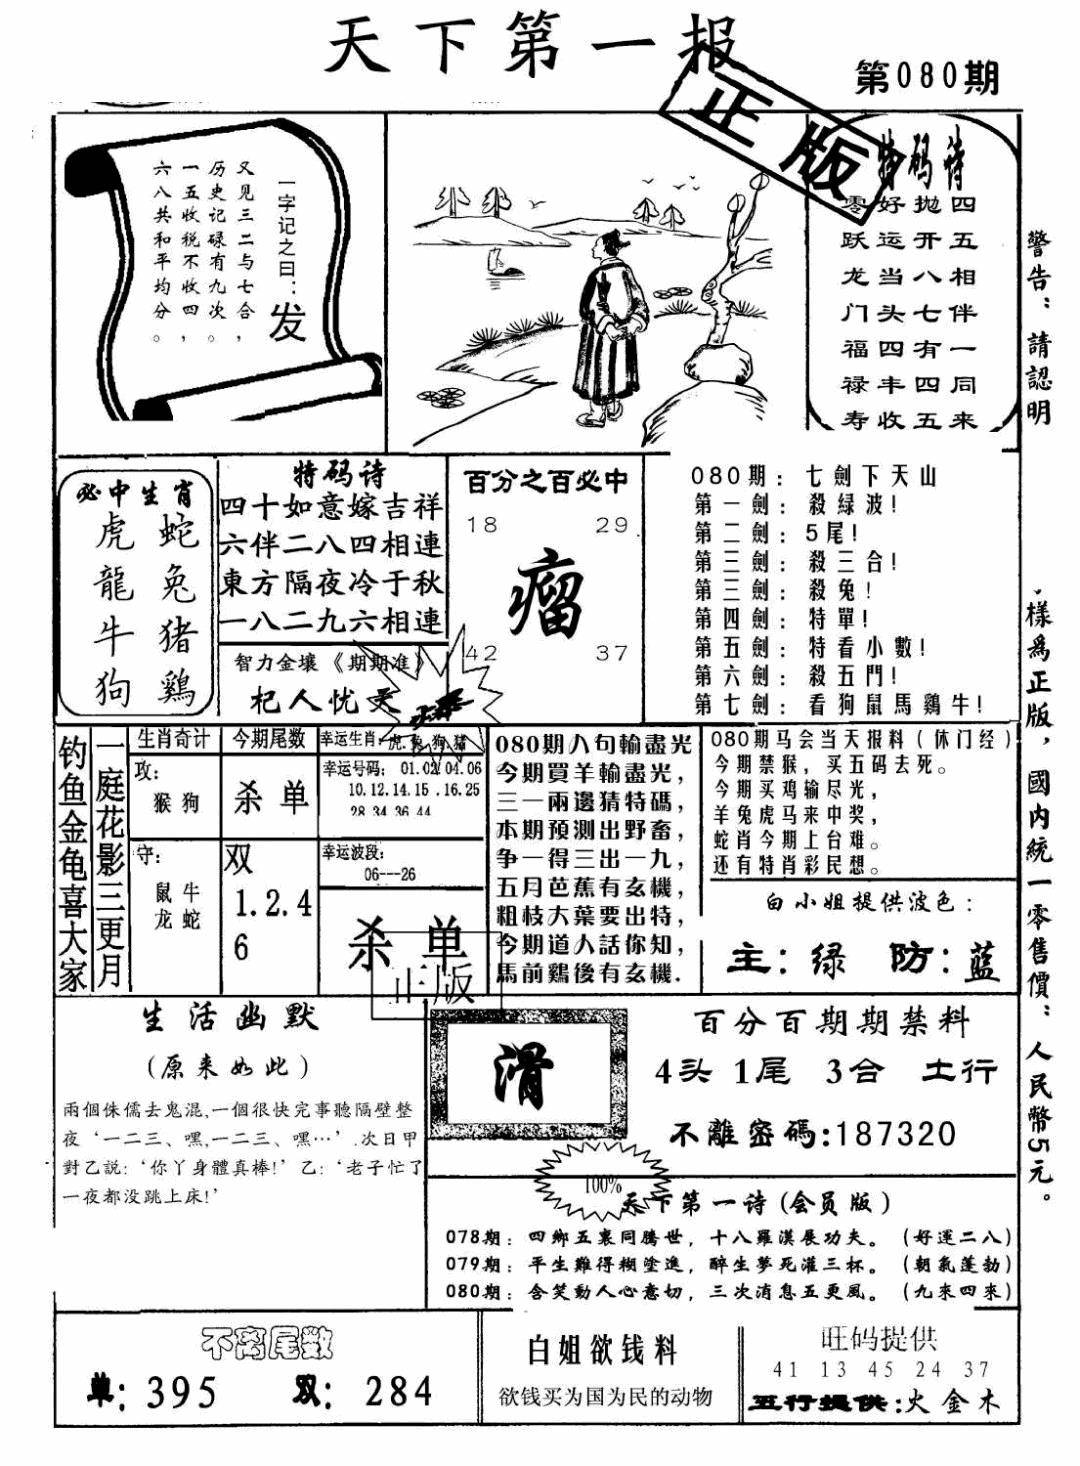 天下第一报
第080期
正版
一字记之曰：发
又见三二与七合，
历史记碌有九次。
一五收税不收四，
六八共和平均分。
特码诗
零好抛四
跃运开五
龙当八相
门头七伴
福四有一
禄丰四同
寿收五来
警告：請認明
樣爲正版，國内統一零售價：人民幣5元。
必中生肖
虎 蛇
龍 兔
牛 猪
狗 鷄
特码诗
四十如意嫁吉祥
六伴二八四相連
東方隔夜冷于秋
一八二九六相連
智力金壤《期期准》
杞人忧天
百分之百必中
18 29
瘤
42 37
080期：七劍下天山
第一劍：殺緑波!
第二劍：5尾!
第三劍：殺三合!
第三劍：殺兔!
第四劍：特單!
第五劍：特看小數!
第六劍：殺五門!
第七劍：看狗鼠馬鷄牛!
钓鱼金龟喜大家
一庭花影三更月
生肖奇计
攻：
猴 狗
守：
鼠 牛
龙 蛇
今期尾数
杀 单
双
1.2.4
6
幸运生肖：虎 兔 狗 猪
幸运号码：01.02 04.06
10.12.14.15 .16.25
28 34 36 44
幸运波段：
06---26
杀 单
正版
080期八句輸盡光
今期買羊輸盡光，
三一兩邊猜特碼，
本期預測出野畜，
争一得三出一九，
五月芭蕉有玄機，
粗枝大葉要出特，
今期道人話你知，
馬前鷄後有玄機.
080期马会当天报料（休门经）
今期禁猴，买五码去死。
今期买鸡输尽光，
羊兔虎马来中奖，
蛇肖今期上台难。
还有特肖彩民想。
白小姐提供波色：
主：绿 防：蓝
生活幽默
(原来如此)
兩個侏儒去鬼混,一個很快完事聽隔壁整
夜‘一二三、嘿,一二三、嘿…’.次日甲
對乙説:‘你丫身體真棒!’乙:‘老子忙了
一夜都没跳上床!’
滑
百分百期期禁料
4头 1尾 3合 土行
不離密碼:187320
100%
天下第一诗(会员版)
078期：四鄉五裏同騰世，十八羅漢展功夫。（好運二八）
079期：平生難得糊塗進，醉生夢死灌三杯。（朝氣蓬勃）
080期：含笑動人心意切，三次消息五更風。（九來四來）
不离尾数
单: 395 双: 284
白姐欲钱料
欲钱买为国为民的动物
旺码提供
41 13 45 24 37
五行提供:火金木